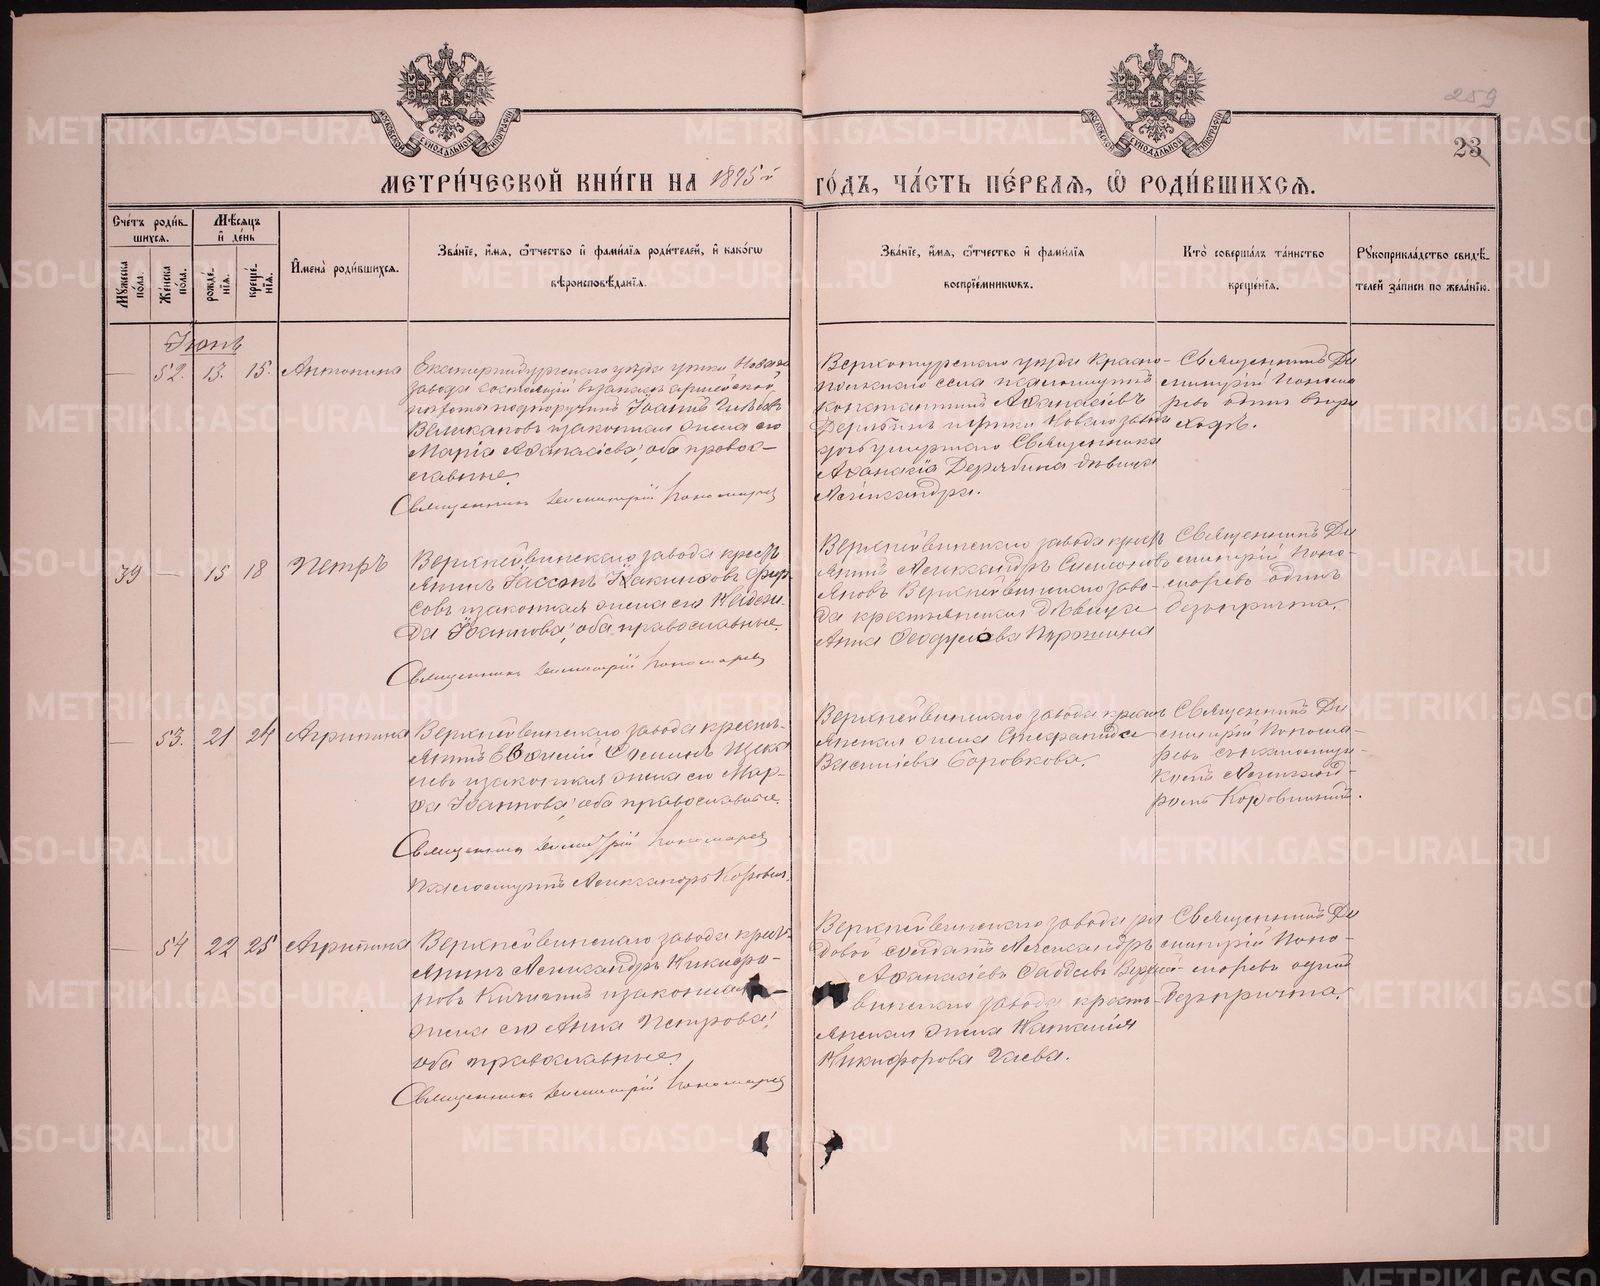 259
23
МОСКОВСКОЙ СѴНОДАЛЬНОЙ ТИПОГРАФІИ
МОСКОВСКОЙ СѴНОДАЛЬНОЙ ТИПОГРАФІИ
МЕТРИ́ЧЕСКОЙ КНИ́ГИ НА 1895й
ГО́ДЪ, ЧА́СТЬ ПЕ́РВАЯ, Ѡ РОДИ́ВШИХСЯ.
Сче́тъ роди́в-
шихся.
Мѣ́сяцъ
и҆ де́нь
Мꙋ́жеска по́ла.
Же́нска по́ла.
рожде́-
нїя.
креще́-
нїя.
И҆мена̀ роди́вшихся.
Зва́нїе, и҆́мя, ѻ҆́тчество и҆ фами́лїя роди́телей, и҆ како́гѡ
вѣроисповѣ́данїя.
Зва́нїе, и҆́мя, ѻ҆́тчество и҆ фами́лїя
воспрїе́мникѡвъ.
Кто̀ соверша́лъ та́инство
креще́нїя.
Рꙋкоприкла́дство свидѣ́-
телей за́писи по жела́нїю.
Іюнь
— 52. 13. 15. Антонина
Екатеринбургскаго уѣзда утки Новаго
завода состоящій въ запасѣ армейской
пѣхоты подпоручикъ Іоаннъ
Великановъ и законная жена его
Марія Аѳанасіева, оба правос-
лавные.
Священникъ Димитрій Пономаревъ
Верхотурскаго уѣзда Красно-
польскаго села псаломщикъ
Константинъ Аѳанасіевъ
Дерябинъ и утки Новаго завода
дочь умершаго Священника
Аѳанасія Дерябина дѣвица
Александра.
Священникъ Ди-
митрій Понома-
ревъ одинъ
39 — 15 18 Петръ
Верхнейвинскаго завода кресть-
янинъ Іассонъ Іоакимовъ Фир-
совъ и законная жена его Надеж-
да Іоаннова, оба православные.
Священникъ Димитрій Пономаревъ
Верхнейвинскаго завода кресть-
янинъ Александръ Симеоновъ
Верхнейвинскаго заво-
да крестьянская дѣвица
Анна Ѳеодулова Паршина
Священникъ Ди-
митрій Поно-
маревъ одинъ
безъ причта.
— 53. 21 24 Агрипина
Верхнейвинскаго завода кресть-
янинъ Симеонъ
и законная жена его Мар-
ѳа Іоаннова, оба православные.
Священникъ Димитрій Пономаревъ
Псаломщикъ Александръ Коровинъ.
Верхнейвинскаго завода кресть-
янская жена Стефанида
Василіева Боровкова.
Священникъ Ди-
митрій Понома-
ревъ съ псаломщи-
комъ Александ-
ромъ Коровинымъ.
— 54 22 25 Агрипина
Верхнейвинскаго завода кресть-
янинъ Александръ Никифо-
ровъ и законная
жена его Анна Петрова,
оба православные.
Священникъ Димитрій Пономаревъ
Верхнейвинскаго завода ря-
довой солдатъ Александръ
Аѳанасіевъ Саввевъ Верхней-
винскаго завода кресть-
янская жена Наталія
Никифорова Гаева.
Священникъ Ди-
митрій Поно-
маревъ одинъ
безъ причта.
METRIKI.GASO-URAL.RU